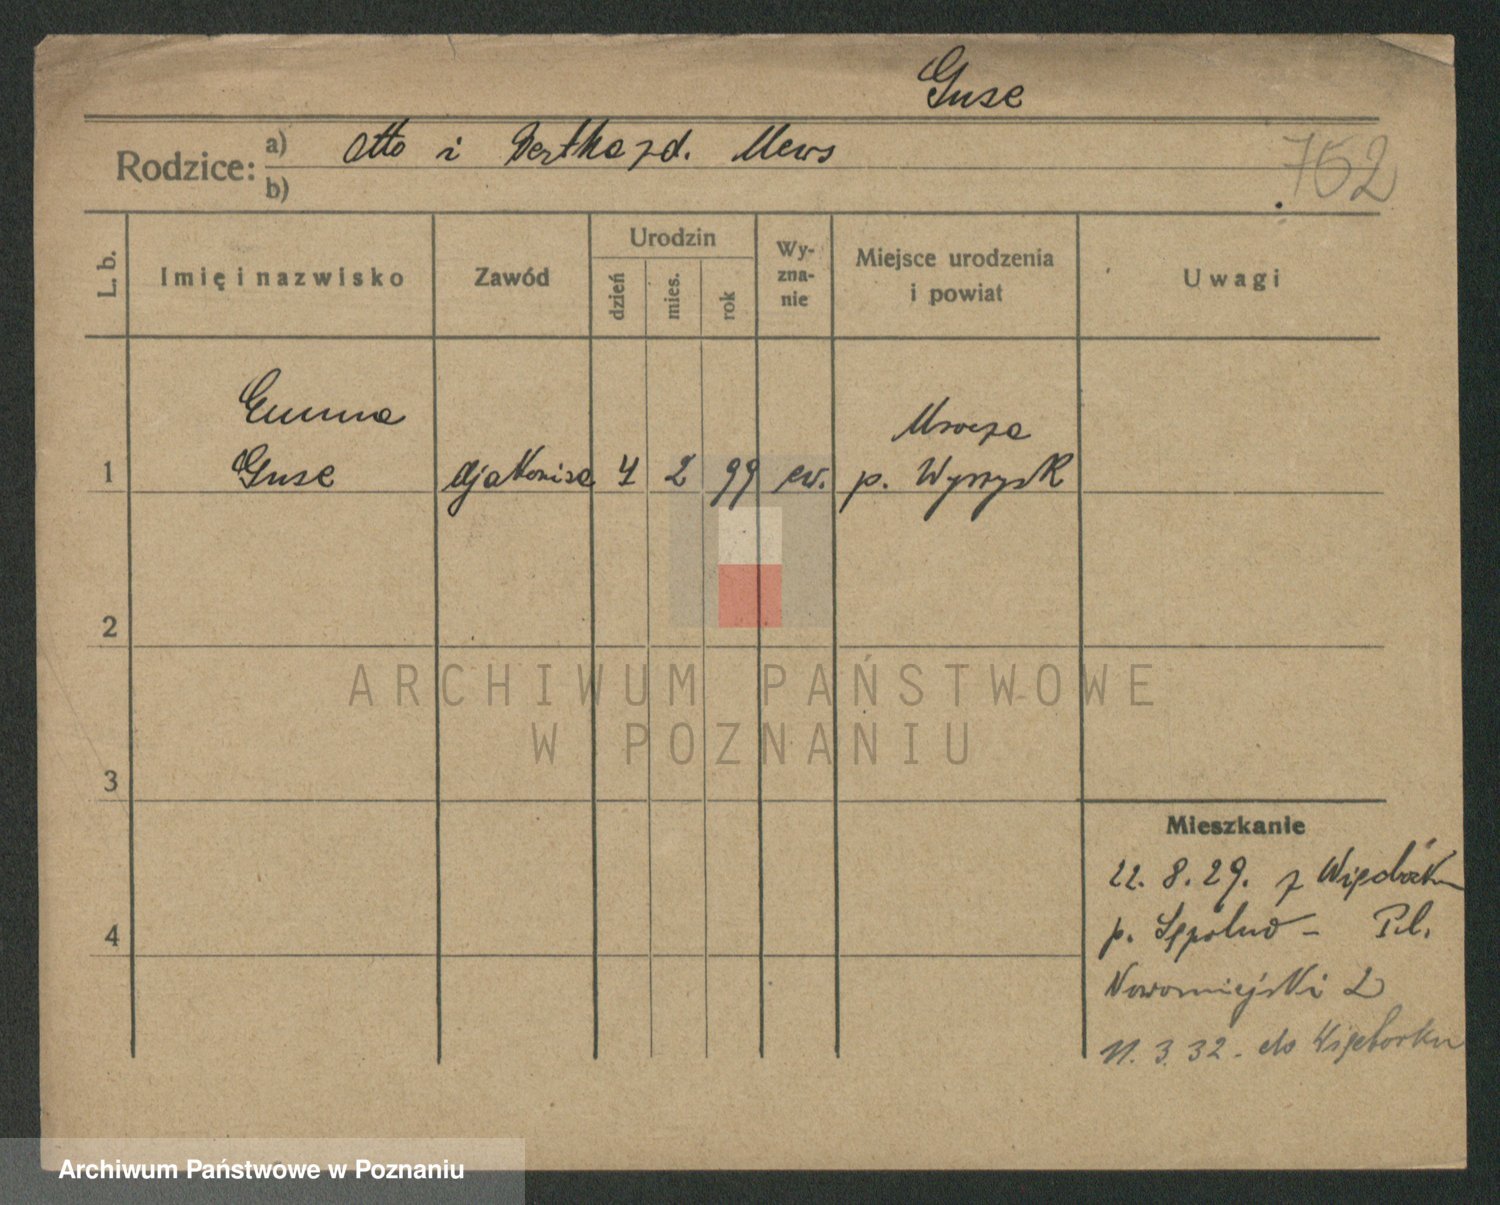 Guse
Rodzice: a) Otto i Bertha z d. Mews
b)
752
L. b. Imię i nazwisko Zawód Urodzin dzień mies. rok Wy-zna-nie Miejsce urodzenia i powiat Uwagi
Emma Mrocza
1 Guse djakonisa 4 2 99 ew. p. Wyrzysk
2
3
4
Mieszkanie
22. 8. 29. z Więcborka
p. Sępolno - Pl.
Nowomiejski 2
11. 3. 32 - do Więcborku
ARCHIWUM PAŃSTWOWE
W POZNANIU
Archiwum Państwowe w Poznaniu